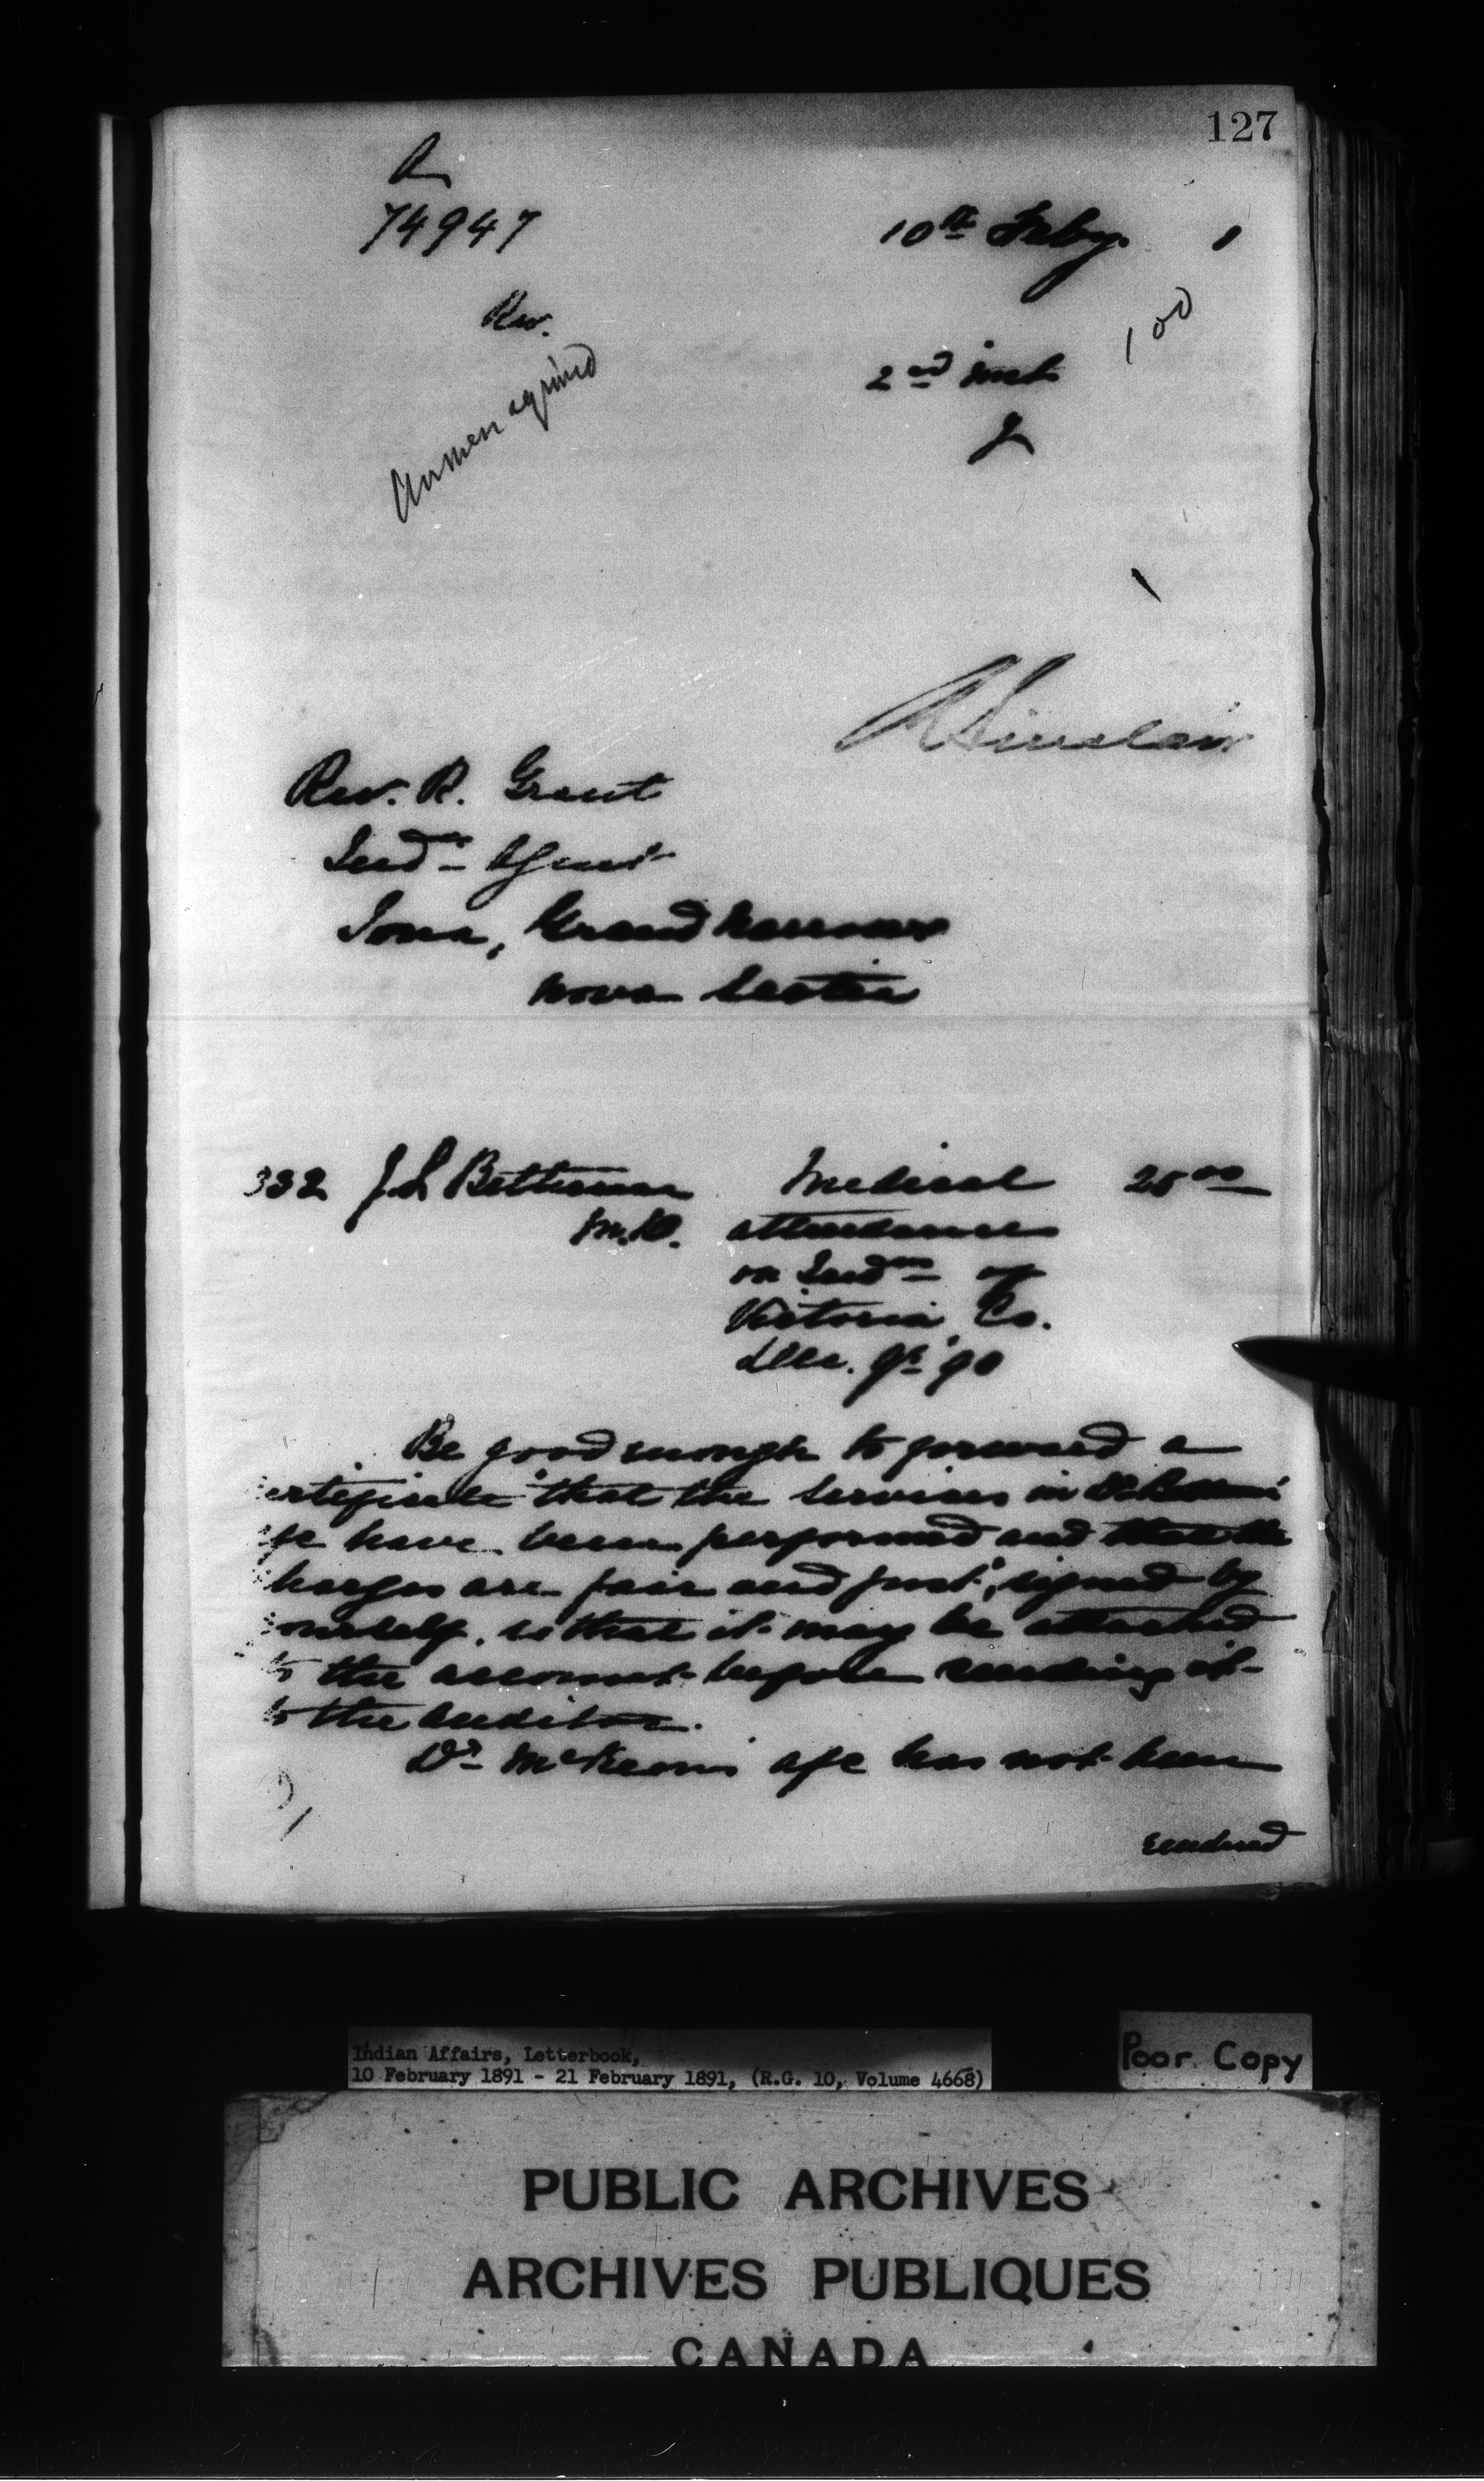 127
R
74947
10th Feby. 1
Rev.
100
2nd inst.
J
Ansmen
R Sinclair
Rev. R. Grant
Indn Agent
Iona, Grand Narrows
Nova Scotia
332 J.L. Bethune Medical 25 00
M.D. attendance
on Indns of
Victoria Co.
Dec. qr '90
Be good enough to forward a
ertificate "that the services in Dr Bethune's
a/c have been performed and that the
harges are fair and just", signed by
ourself, so that it may be attached
to the account before sending it
to the Auditor.
Dr McKeen's a/c has not been
rendered
Indian Affairs, Letterbook,
10 February 1891 - 21 February 1891, (R.G. 10, Volume 4668)
Poor Copy
PUBLIC ARCHIVES
ARCHIVES PUBLIQUES
CANADA